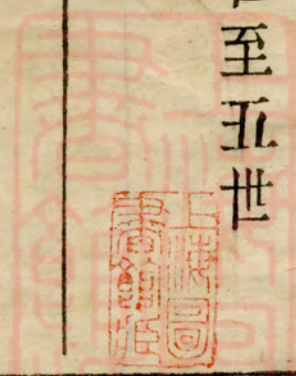 至正世
上海圖
書館藏